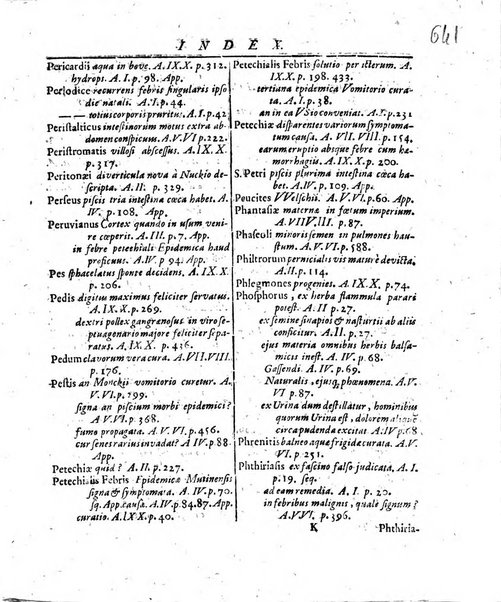 641
INDEX
Pericardii aqua in bove. A. IX. X. p. 312.
hydrops. A. I. p. 98. App.
Periodice recurrens febris singularis ipso
die natali. A. I. p. 44.
— — totius corporis pruritus. A. I. p. 42
Peristalticus intestinorum motus extra ab-
domen conspicuus. A. V. VI. p. 322.
Peristromatis villosi abscessus. A. IX. X.
p. 317.
Peritonæi diverticula nova à Nuckio de-
scripta. A. II. p. 329.
Perseus piscis tria intestina cœca habet. A.
IV. p. 108. App.
Peruvianus Cortex quando in usum veni-
re cœperit. A. III. p. 7. App.
in febre petechiali Epidemica haud
proficuus. A. IV p. 94. App.
Pes sphacelatus sponte decidens. A. IX. X
p. 206.
Pedis digitus maximus feliciter servatus.
A. IX. X. p. 269.
dextri pollex gangrænosus in viro se-
ptuagenario majore feliciter sepa-
ratus. A. IX. X. p. 436.
Pedum clavorum vera cura. A. VII. VIII.
p. 176.
Pestis an Monckii vomitorio curetur. A.
V. VI. p. 799.
signa an piscium morbi epidemici?
A. V. VI. p. 368.
fumo propagata. A. V. VI. p. 456.
cur senes rarius invadat? A. IV. p. 88.
App.
Petechiæ quid? A. II. p. 227.
Petechialis Febris Epidemicæ Mutinensis
signa & symptomata. A. IV. p. 70.
sq. App. causa. A. IV. p. 84. 87. App.
curatio. A. IX. X. p. 40.
Petechialis Febris solutio per icterum. A.
IX. X. p. 198. 433.
tertiana epidemica Vomitorio cura-
ta. A. I. p. 38.
an in ea VSio conveniat. A. I. p. 231
Petechiæ disparentes variorum sympto-
tum causa. A. VII. VIII. p. 154.
earum eruptio absque febre cum hæ-
morrhagiis. A. IX. X. p. 200.
S. Petri piscis plurima intestina cœca ha-
bet. A. IV. p. 109. App.
Peucites VVelschii. A. V. VI. p. 60. App.
Phantasiæ maternæ in fœtum imperium.
A. VII VIII. p. 87.
Phaseoli minoris semen in pulmones hau-
stum. A. V. VI. p. 588.
Philtrorum pernicialis vis matura devicta.
A. II. p. 114.
Phlegmones progenies. A. IX. X. p. 74.
Phosphorus, ex herba flammula parari
potest. A. II. p. 27.
ex semine sinapios & nasturtii ab aliis
conficitur. A. II. p. 27.
ejus materia omnibus herbis balsa-
micis inest. A. IV. p. 68.
Gassendi. A. IV. p. 68.
Naturalis, ejusq; phænomena. A. V.
VI p. 87.
ex Urina dum destillatur, hominibus
quorum Urina est, dolorem aliquem
circa pudenda excitat A. IV. p. 68
Phrenitis balneo aquæ frigidæ curata. A. V.
VI. p. 251.
Phthiriasis ex fascino falso judicata, A. I.
p. 19. seq.
ad eam remedia. A. I. p. 20.
in febribus malignis, quale signum?
A. V. VI. p. 396.
K
Phthiria-